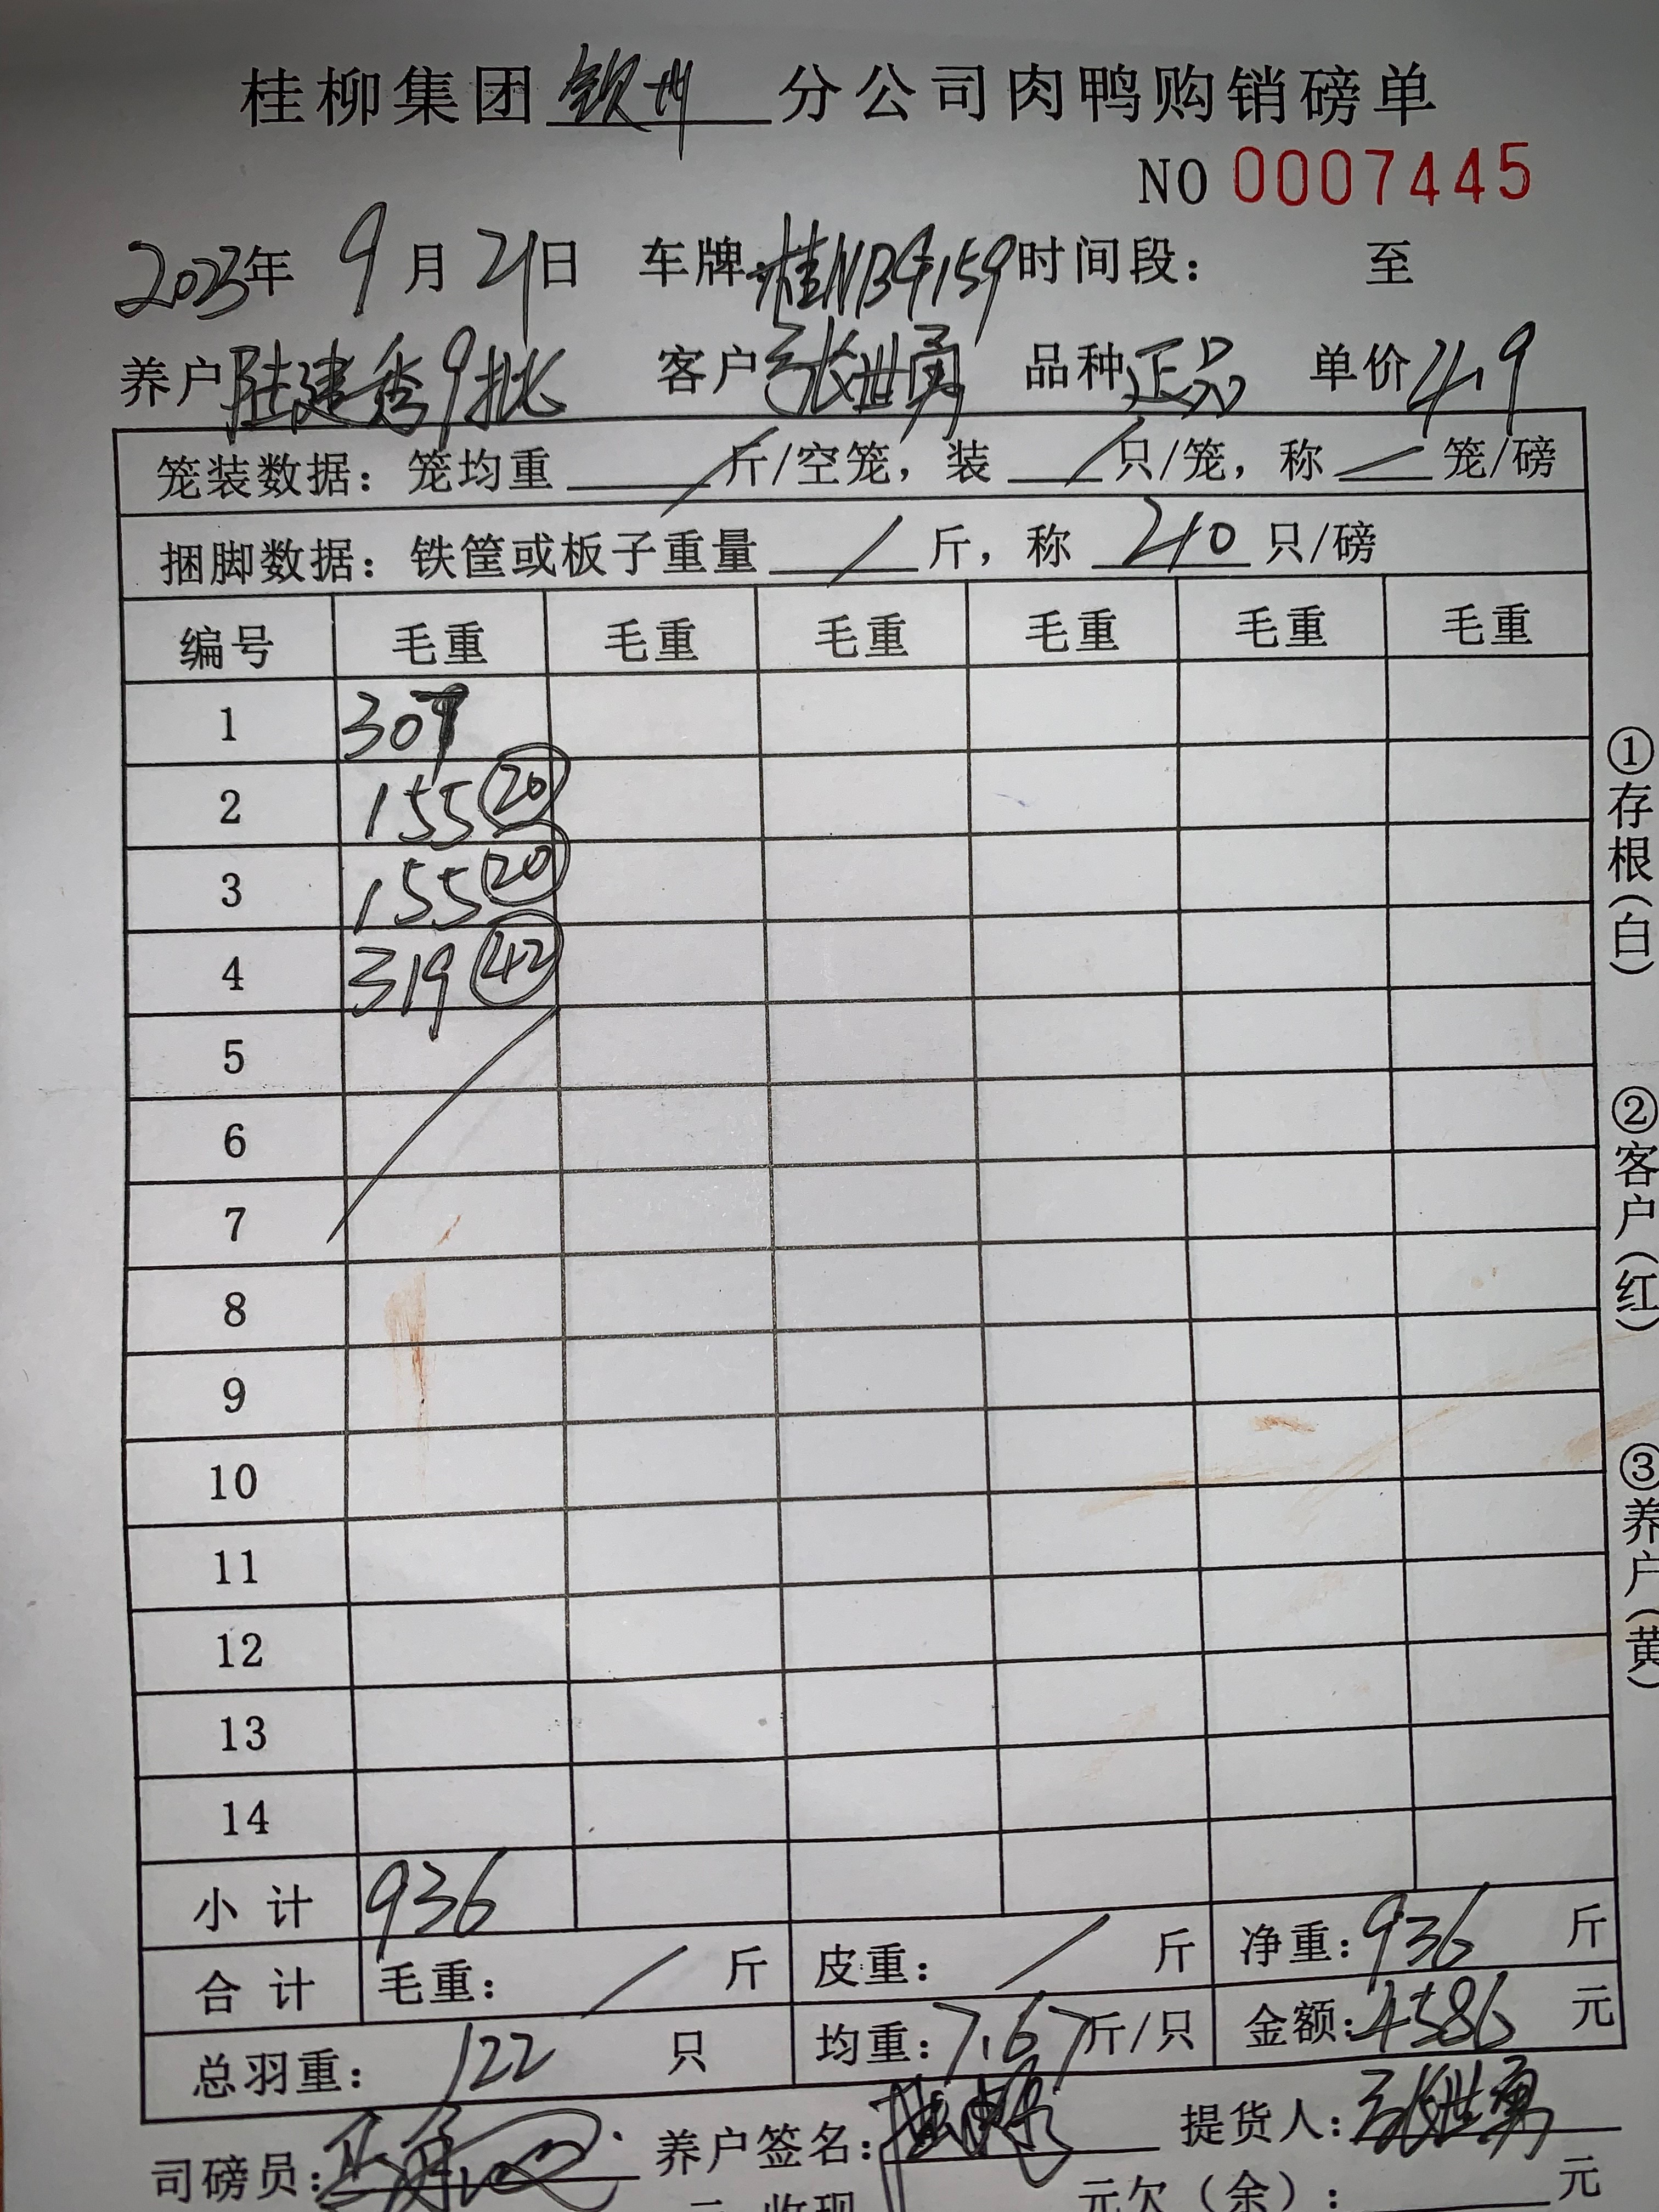 桂柳集团钦州分公司肉鸭购销磅单
NO 0007445
2023年 9月 21日 车牌:桂NB9159 时间段: 至
养户 陆建秀9批 客户 张世勇 品种 正品 单价 4.9
笼装数据:笼均重 / 斤/空笼,装 / 只/笼,称 / 笼/磅
捆脚数据:铁筐或板子重量 / 斤,称 40 只/磅
编号 毛重 毛重 毛重 毛重 毛重 毛重
1 307
2 155 20
3 155 20
4 319 42
5
6
7
8
9
10
11
12
13
14
小计 936
合计 毛重: / 斤 皮重: / 斤 净重:936 斤
总羽重: 122 只 均重:7.67斤/只 金额:4586 元
司磅员: 养户签名: 提货人:张世勇
元 收现 元欠(余): 元
①存根(白)
②客户(红)
③养户(黄)